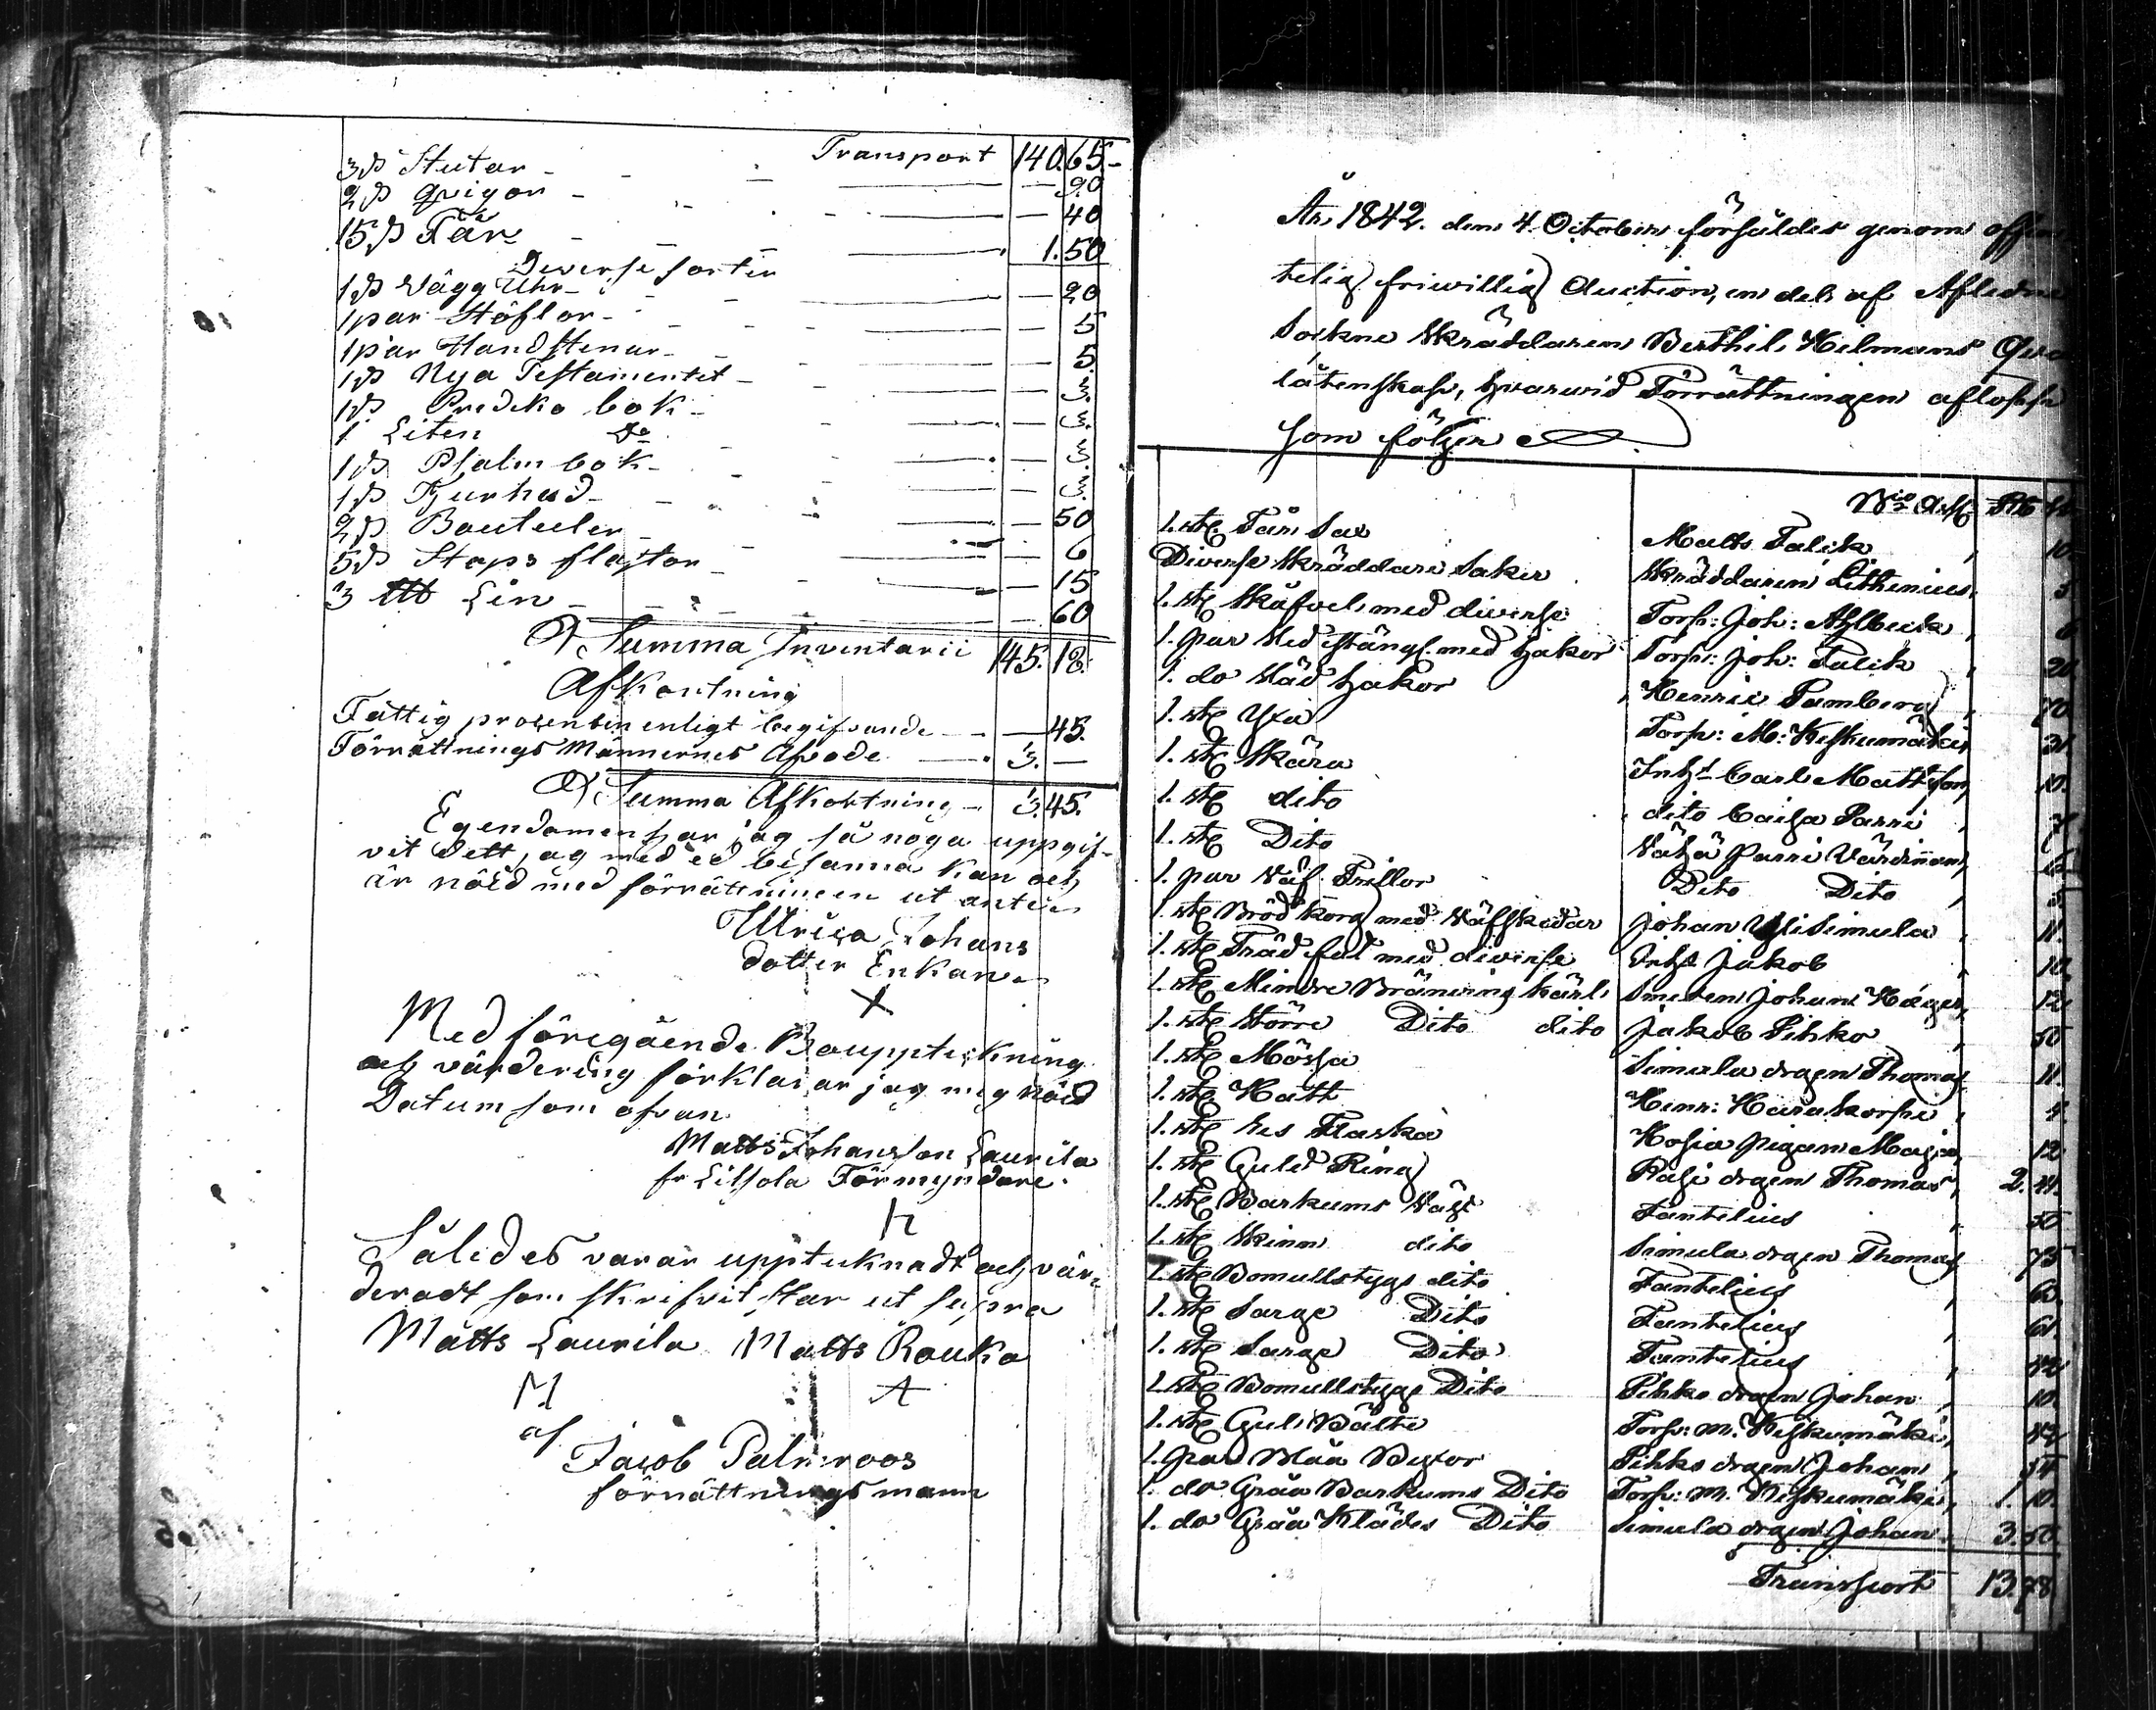 Transport 140.65.
3 st Stutar - 90
2 st Qvigor - 40
15 st Får - 1.50
Diverse sorter
1 st Vägg Uhr - 20
1 par Stöflor - 5
1 par Handstenar - 5.
1 st Nya Testamentet - 3.
1 st Prediko bok - 3.
1 Liten do 3.
1 st Psalm bok - 3.
1 st Tjurhud - 50
2 st Bouteuler - 6
5 st Staps flaskor - 15
3 ℔ Lin - 60
Summa Inventarii 145.18.
Afkortning
Fattig prosenten enligt begifvande — 45.
Förrättnings Mannernes Arvode 3. —
Summa Afkortning - 3.45.
Egendomen har jag så noga uppgif-
vit dett jag med ed besanna kan och
är nöid med förrättningen ut antie
Ulrica Johans
dotter Enkan
X
Med föregående Bouppteckning
och värdering förklarar jag mig nöid
Datum som ofvan
Matts Johansson Laurila
fr Lillola Förmyndare.
Således varar upptecknadt och vär-
deradt som skrifvit star ut supra
Matts Laurila Matts Rouka
M A
af
Jacob Palmroos
förrättningsmann
År 1842. den 4. October försåldes genom offen
telig friwillig Auction, en del af Afledne
Sockne Skräddaren Berthil Heilmans Qvar
låtenskap, hvarwid Förrättningen aflopp
som följer
1. st. Får Sax Matts Talik 10
Diverse Skräddare Saker Skräddaren Lithenius 5
1. st. Skåfvel med diverse Torp: Joh: Ahlbeck 6
1. par Sled stängs. med hakor Torp: Joh: Talik 21
1. do Släd hakor Henric Tamberg 70
1. st. Yxa Torp: M: Keskumäki 31
1. st. Skära Inh. Carl Mattsson 10.
1. st. dito dito Caisa Parri 7
1. st. Dito Vähä Parri Värdinnan 6
1. par Väf Trillor Dito Dito 5.
1. st. Bröd korg med Väfskedar Johan Yli Simula 11.
1. st. Träd fat med diverse Inhs Jakob 10
1. st. Mindre Bränerins Kärl Smeden Johan Häger 12
1. st. Större Dito dito Jakob Pihko 50
1. st. Mössa Simula drgen Thomas 11.
1. st. Hatt Henr: Harukorpi 4.
1. st. Ses Flaska Kosia pigan Maja 12
1. st. Guld Ring Pasi drgen Thomas 2.41.
1. st. Barkums Väst Fantelius 50
1. st. Skinn dito Simula drgen Thomas 75
1. st. Bomullstygs dito Fantelius 62.
1. st. Sarge Dito Fantelius 61.
1. st. Sarge Dito Fantelius 42
1. st. Bomullstygs Dito Pihko drgen Johan 10
1. st. Gult Bälte Torp: M. Keskumäki 42
1. par Blåa Bexor Pihko drgen Johan 54
1. do Gråa Barkums Dito Torp: M. Keskumäki 1.10.
1. do Gråa Klädes Dito Simula drgen Johan 3.50
Transport 13.78